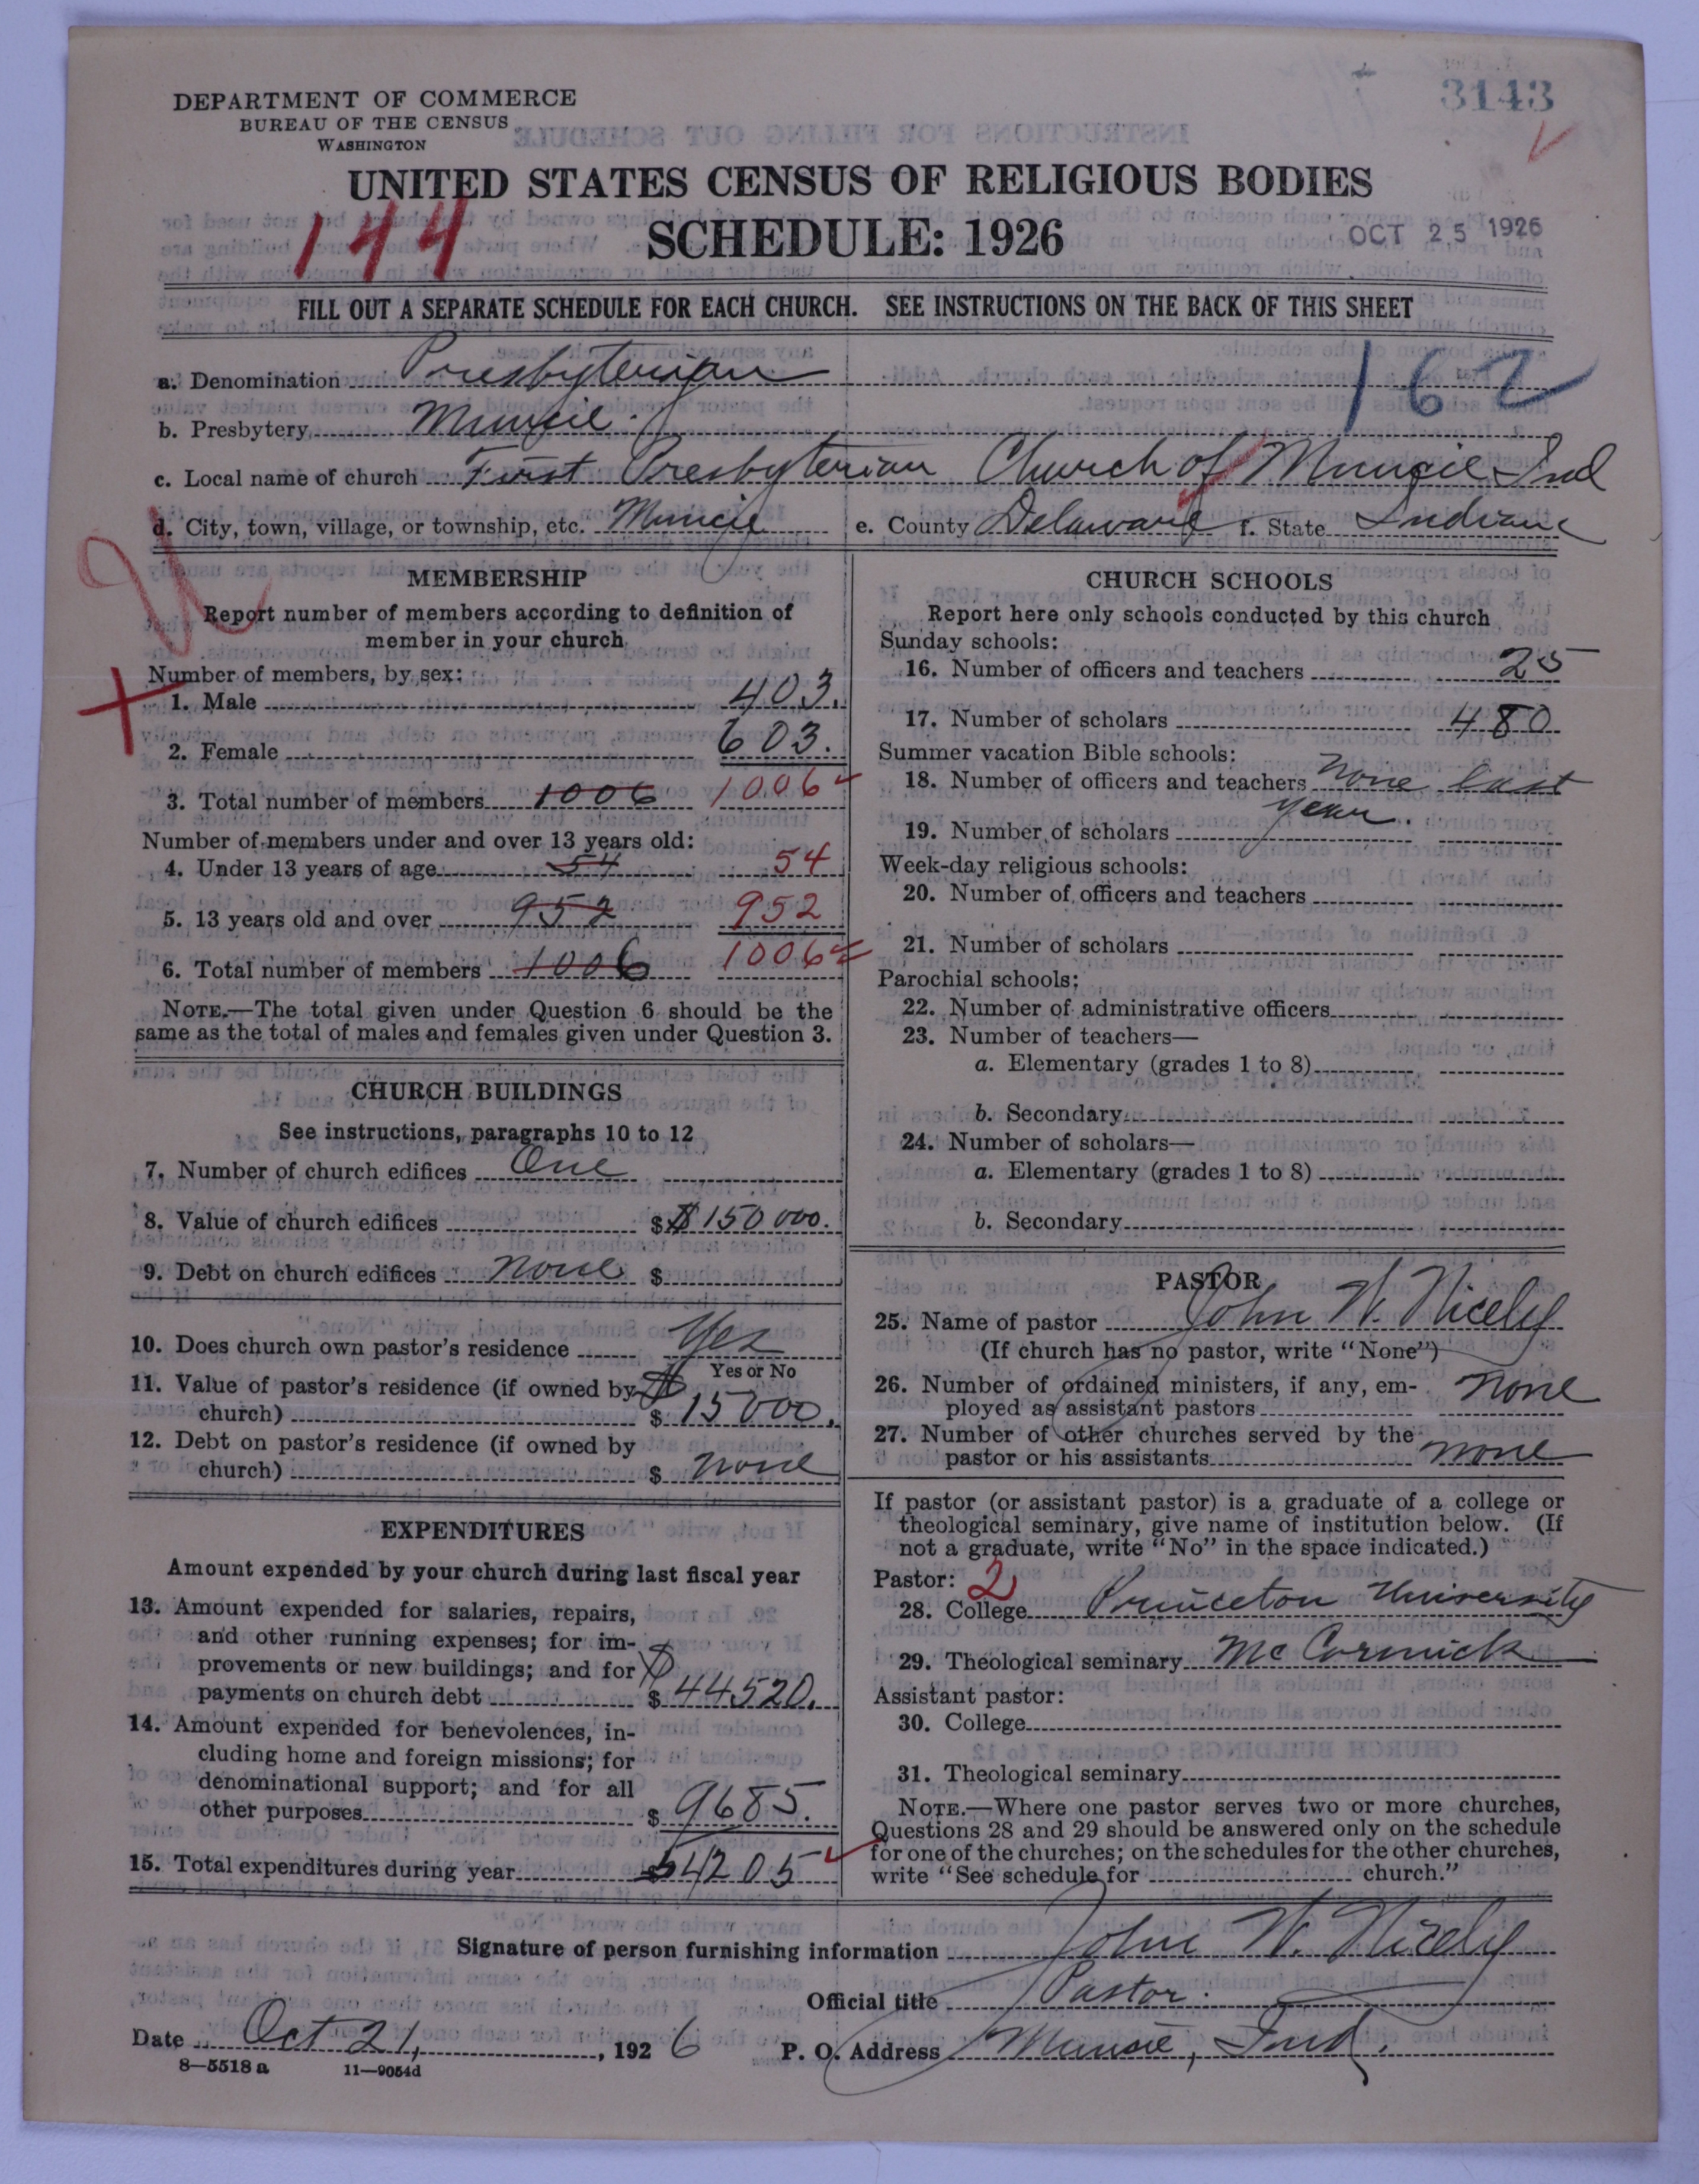 3143
DEPARTMENT OF COMMERCE
BUREAU OF THE CENSUS
WASHINGTON
UNITED STATES CENSUS OF RELIGIOUS BODIES
144
SCHEDULE: 1926
OCT 25 1926
FILL OUT A SEPARATE SCHEDULE FOR EACH CHURCH. SEE INSTRUCTIONS ON THE BACK OF THIS SHEET
162
a. Denomination Presbyterian
b. Presbytery Muncie.
c. Local name of church First Presbyterian Church of Muncie Ind
d. City, town, village, or township, etc. Muncie e. County Delaware f. State Indiana
MEMBERSHIP
Report number of members according to definition of
member in your church
Number of members, by sex:
1. Male 403.
2. Female 603.
3. Total number of members 1006 1006
Number of members under and over 13 years old:
4. Under 13 years of age 54 54
5. 13 years old and over 952 952
6. Total number of members 1006 1006
NOTE.—The total given under Question 6 should be the
same as the total of males and females given under Question 3.
CHURCH BUILDINGS
See instructions, paragraphs 10 to 12
7. Number of church edifices One
8. Value of church edifices $ $150000.
9. Debt on church edifices None $
10. Does church own pastor's residence Yes
Yes or No
11. Value of pastor's residence (if owned by
church) $ $15000.
12. Debt on pastor's residence (if owned by
church) $ None
EXPENDITURES
Amount expended by your church during last fiscal year
13. Amount expended for salaries, repairs,
and other running expenses; for im-
provements or new buildings; and for
payments on church debt $ $44520.
14. Amount expended for benevolences, in-
cluding home and foreign missions; for
denominational support; and for all
other purposes $ 9685.
15. Total expenditures during year 54205
CHURCH SCHOOLS
Report here only schools conducted by this church
Sunday schools:
16. Number of officers and teachers 25
17. Number of scholars 480
Summer vacation Bible schools:
18. Number of officers and teachers None last
year.
19. Number of scholars
Week-day religious schools:
20. Number of officers and teachers
21. Number of scholars
Parochial schools:
22. Number of administrative officers
23. Number of teachers—
a. Elementary (grades 1 to 8)
b. Secondary
24. Number of scholars—
a. Elementary (grades 1 to 8)
b. Secondary
PASTOR
25. Name of pastor John W. Nicely
(If church has no pastor, write "None")
26. Number of ordained ministers, if any, em-
ployed as assistant pastors None
27. Number of other churches served by the
pastor or his assistants None
If pastor (or assistant pastor) is a graduate of a college or
theological seminary, give name of institution below. (If
not a graduate, write "No" in the space indicated.)
Pastor: 2
28. College Princeton University
29. Theological seminary McCormick
Assistant pastor:
30. College
31. Theological seminary
NOTE.—Where one pastor serves two or more churches,
Questions 28 and 29 should be answered only on the schedule
for one of the churches; on the schedules for the other churches,
write "See schedule for church."
Signature of person furnishing information John W. Nicely
Official title Pastor.
Date Oct 21, 1926 P. O. Address Muncie, Ind.
8—5518 a 11—9054d